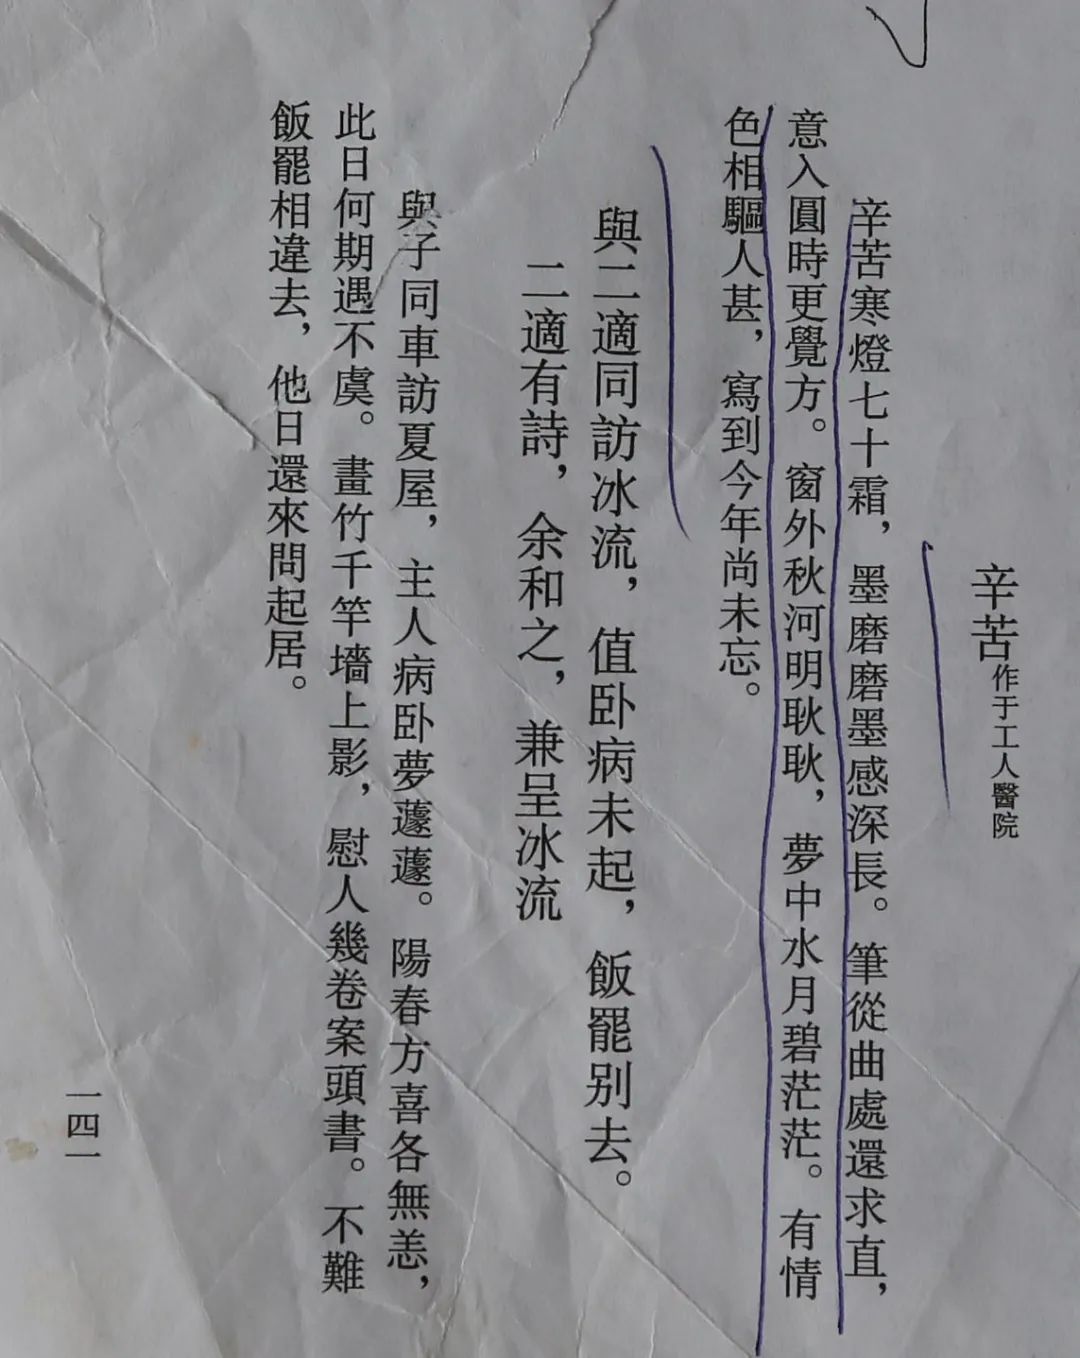 辛苦作于工人醫院
辛苦寒燈七十霜，墨磨磨墨感深長。筆從曲處還求直，
意入圓時更覺方。窗外秋河明耿耿，夢中水月碧茫茫。有情
色相驅人甚，寫到今年尚未忘。
與二適同訪冰流，值卧病未起，飯罷别去。
二適有詩，余和之，兼呈冰流
與子同車訪夏屋，主人病卧夢蘧蘧。陽春方喜各無恙，
此日何期遇不虞。畫竹千竿墻上影，慰人幾卷案頭書。不難
飯罷相違去，他日還來問起居。
一四一